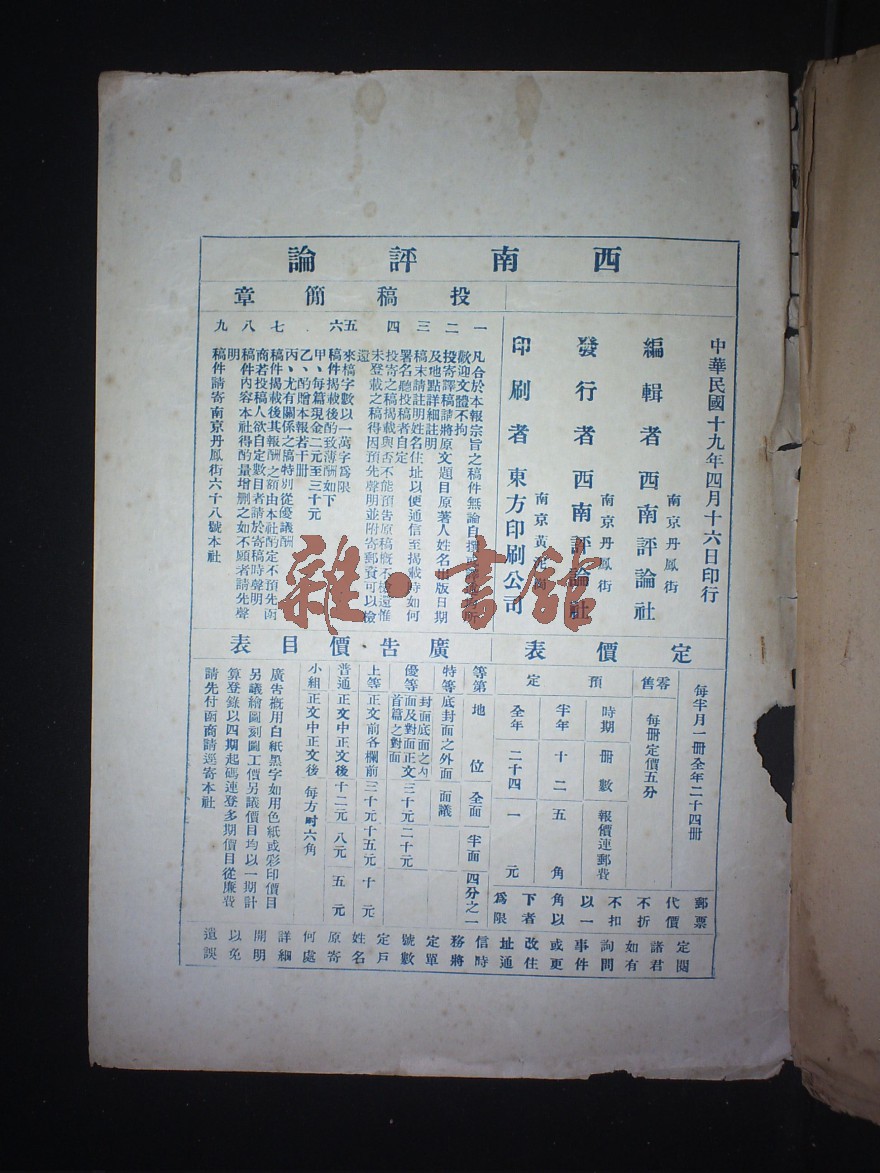 西南評論
中華民國十九年四月十六日印行
編輯者 西南評論社
南京丹鳳街
發行者 西南評論社
南京丹鳳街
印刷者 東方印刷公司
南京黃泥崗
投稿簡章
一 凡合於本報宗旨之稿件無論自撰
歡迎文體不拘
二 投寄譯稿請將原文題目原著人姓名出版日期
及地點詳細註明
三 稿末請註明姓名住址以便通信至揭載時如何
署名聽投稿者自定
四 投寄之稿揭載與否不能預告原稿概不檢還惟
未登載之稿得因預先聲明並附寄郵費可以檢
還
五 來稿字數以一萬字爲限
六 稿件揭載後酌致薄酬如下
甲、每篇現金二元至三十元
乙、酌贈本報若干册
丙、尤有關係之稿特別從優議酬
七 稿件揭載後其報酬之額由本社酌定不預先函
商若投稿人欲自定數目者請於寄稿時聲明
八 稿件內容本社得酌量增删之如不願者請先聲
明
九 稿件請寄南京丹鳳街六十八號本社
定價表
每半月一册全年二十四册
零售 每册定價五分
預定
時期 册數 報價連郵費
半年 十二 五角
全年 二十四 一元
郵票代價不折不扣以一角以下者爲限
廣告價目表
等第 地位 全面 半面 四分之一
特等 底封面之外面 面議
優等 封面底面之內面及對面正文首篇之對面 三十元 二十元
上等 正文前各欄前 三十元 十五元 十元
普通 正文中正文後 十二元 八元 五元
小組 正文中正文後 每方吋六角
廣告概用白紙黑字如用色紙或彩印價目
另議繪圖刻圖工價另議價目均以一期計
算登錄以四期起碼連登多期價目從廉費
請先付函商請逕寄本社
定閱諸君如有詢問事件或更改住址通信時務將定單號數定戶姓名原寄何處詳細開明以免遺誤
雜·書館